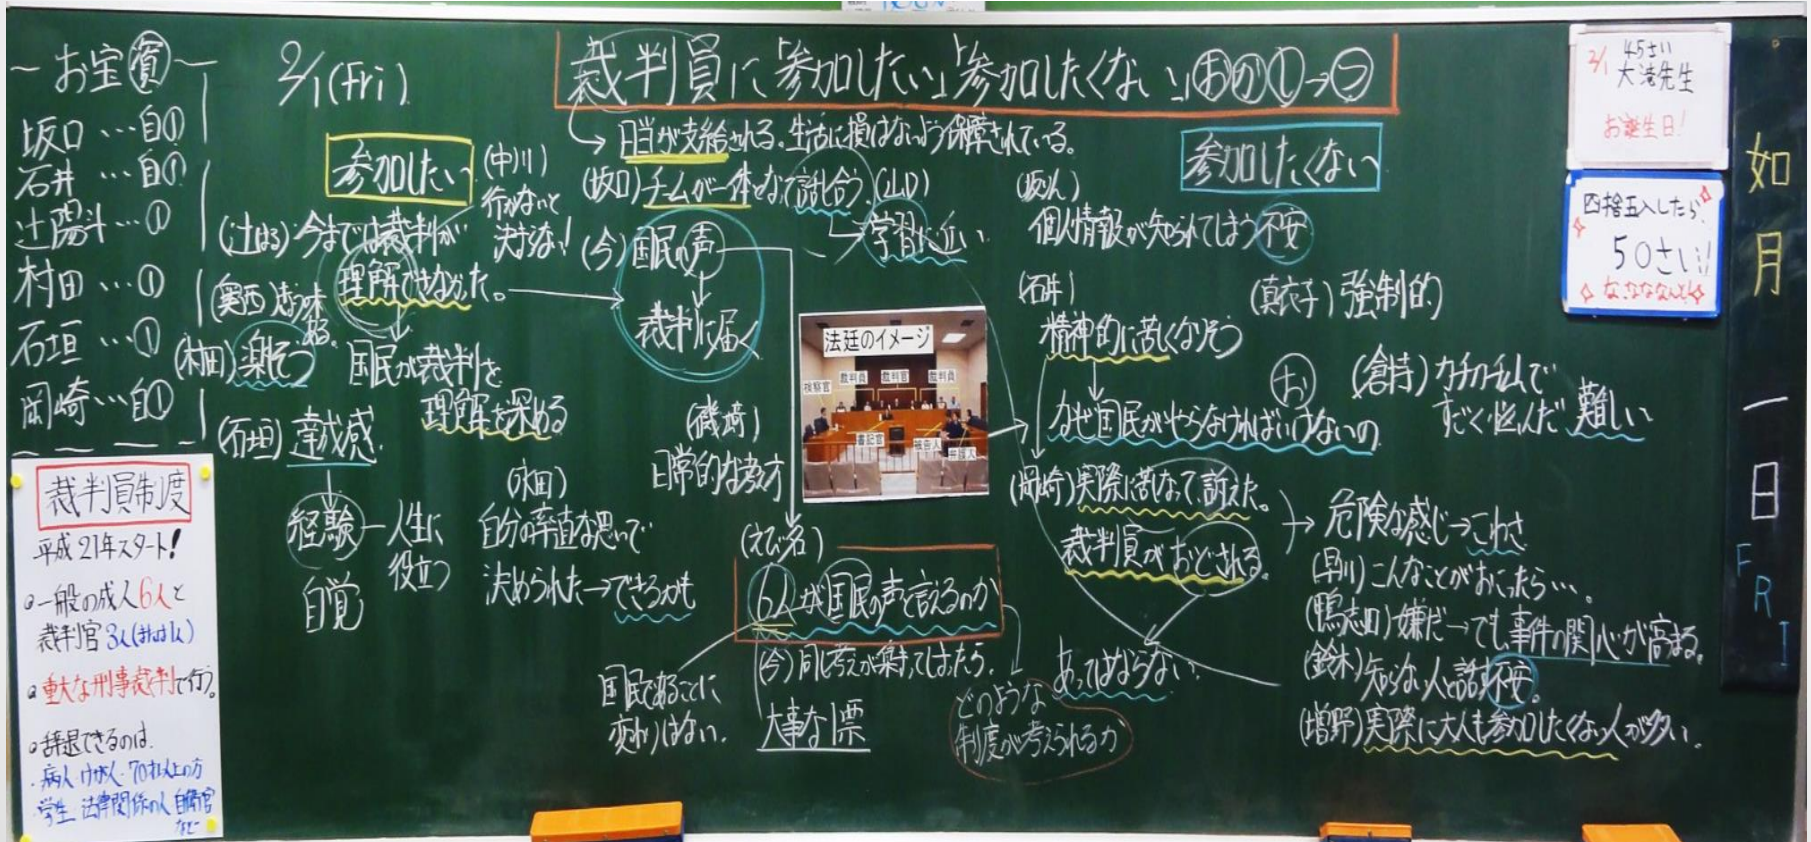 ～お宝㊮～
坂口…自①
石井…自①
辻陽斗…①
村田…①
石垣…①
岡崎…自①
裁判員制度
平成21年スタート!
一般の成人6人と
裁判官3人(または1人)
重大な刑事裁判で行う。
辞退できるのは、
・病人・けが人・70才以上の方
・学生 法律関係の人 自衛官
など
2/1(Fri)
裁判員に「参加したい」「参加したくない」おかし→つ
→日当が支給される。生活に損はないよう保障されている。
参加したい
(中川)
行かないと
決まらない!
(辻はる)今までは裁判が
理解できなかった。
国民が裁判を
理解を深める
(奥西)
(村田)楽しそう
(石垣)達成感
経験―人生に
役立つ
自覚
(水田)
自分の率直な思いで
決められた→できるかも
(坂口)チームが一体となって話し合う。(山口)
学習に近い
(今)国民の声
裁判に届く
(磯崎)
日常的な考え方
法廷のイメージ
検察官
裁判員
裁判官
裁判員
書記官
被告人
弁護人
(えび名)
6人が国民の声と言えるのか
国民であることに
変わりはない。
(今)同じ考えが集まってしまったら、
大事な1票
どのような
制度が考えられるか
参加したくない
個人情報が知られてしまう不安
(石井)
精神的に苦しくなりそう
お
なぜ国民がやらなければいけないの
(真衣子)強制的
(倉持)カチカチームで
すごく悩んだ 難しい
(岡崎)実際に苦しなって訴えた。
裁判員がおどされる。
あってはならない。
→危険な感じ→こわさ
(早川)こんなことがおこったら…。
(鴨志田)嫌だ→でも事件の関心が高まる。
(鈴木)知らない人と話す不安。
(増野)実際に大人も参加したくない人が多い。
2/1
45さい
大滝先生
お誕生日!
四捨五入したら、
50さい!!
な、なななんと!
如月一日
FRI